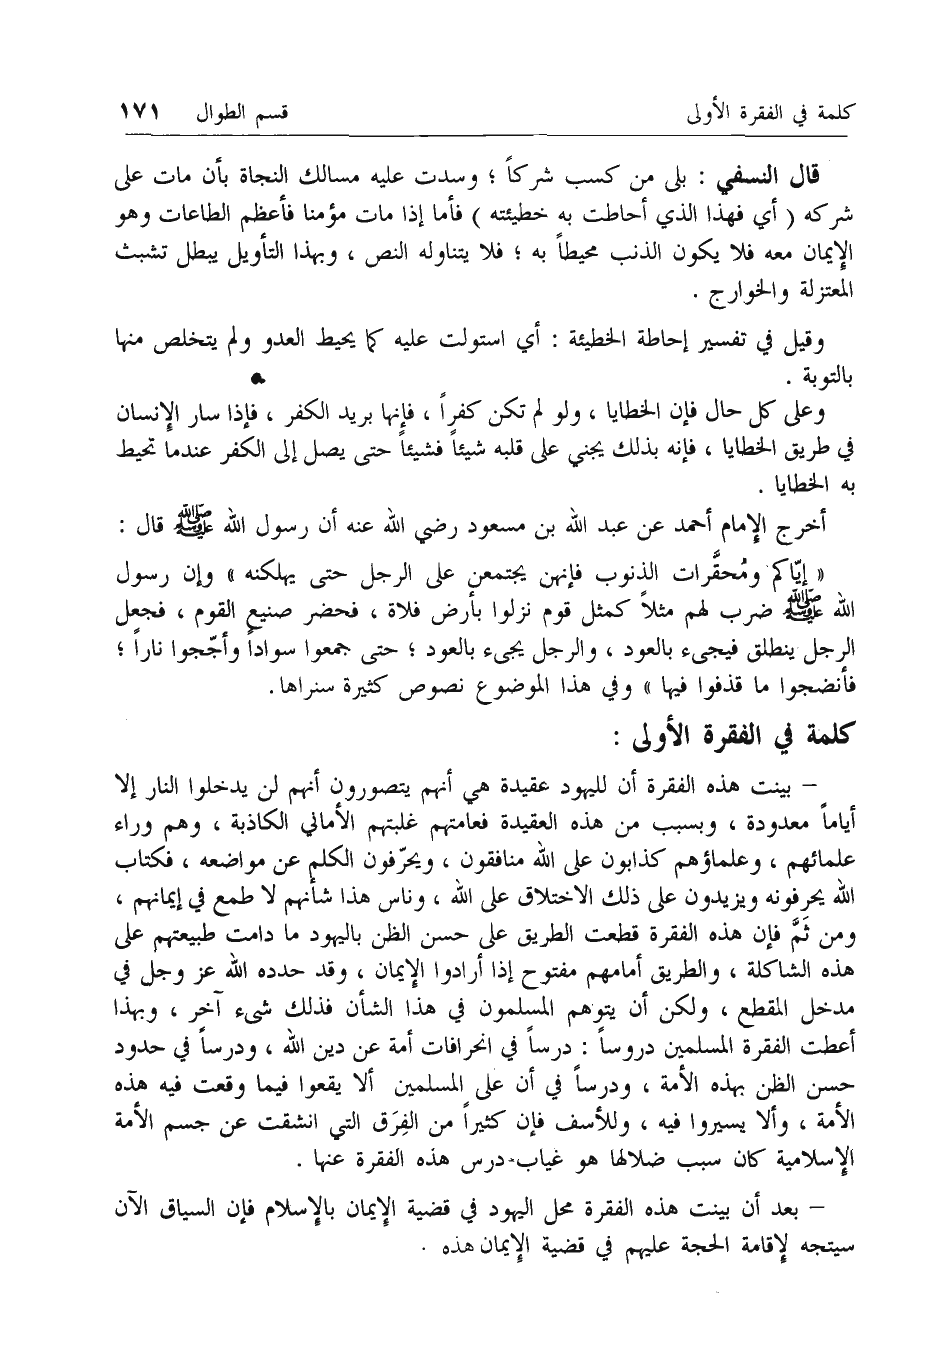 كلمة في الفقرة الأولى قسم الطوال ١٧١
قال النسفي : بلى من كسب شركاً ؛ وسدت عليه مسالك النجاة بأن مات على
شركه ( أي فهذا الذي أحاطت به خطيئته ) فأما إذا مات مؤمنا فأعظم الطاعات وهو
الإيمان معه فلا يكون الذنب محيطاً به ؛ فلا يتناوله النص ، وبهذا التأويل يبطل تشبث
المعتزلة والخوارج .
وقيل في تفسير إحاطة الخطيئة : أي استولت عليه كما يحيط العدو ولم يتخلص منها
بالتوبة .
وعلى كل حال فإن الخطايا ، ولو لم تكن كفراً ، فإنها بريد الكفر ، فإذا سار الإنسان
في طريق الخطايا ، فإنه بذلك يجني على قلبه شيئاً فشيئاً حتى يصل إلى الكفر عندما تحيط
به الخطايا .
أخرج الإمام أحمد عن عبد الله بن مسعود رضي الله عنه أن رسول الله ﷺ قال :
« إيّاكم ومُحقَّرات الذنوب فإنهن يجتمعن على الرجل حتى يهلكنه » وإن رسول
الله ﷺ ضرب لهم مثلاً كمثل قوم نزلوا بأرض فلاة ، فحضر صنيع القوم ، فجعل
الرجل ينطلق فيجيء بالعود ، والرجل يجيء بالعود ؛ حتى جمعوا سواداً وأجّجوا ناراً ؛
فأنضجوا ما قذفوا فيها » وفي هذا الموضوع نصوص كثيرة سنراها.
كلمة في الفقرة الأولى :
– بينت هذه الفقرة أن لليهود عقيدة هي أنهم يتصورون أنهم لن يدخلوا النار إلا
أياماً معدودة ، وبسبب من هذه العقيدة فعامتهم غلبتهم الأماني الكاذبة ، وهم وراء
علمائهم ، وعلماؤهم كذابون على الله منافقون ، ويحرّفون الكلم عن مواضعه ، فكتاب
الله يحرفونه ويزيدون على ذلك الاختلاق على الله ، وناس هذا شأنهم لا طمع في إيمانهم ،
ومن ثَمَّ فإن هذه الفقرة قطعت الطريق على حسن الظن باليهود ما دامت طبيعتهم على
هذه الشاكلة ، والطريق أمامهم مفتوح إذا أرادوا الإيمان ، وقد حدده الله عز وجل في
مدخل المقطع ، ولكن أن يتوهم المسلمون في هذا الشأن فذلك شيء آخر ، وبهذا
أعطت الفقرة المسلمين دروساً : درساً في انحرافات أمة عن دين الله ، ودرساً في حدود
حسن الظن بهذه الأمة ، ودرساً في أن على المسلمين ألا يقعوا فيما وقعت فيه هذه
الأمة ، وألا يسيروا فيه ، وللأسف فإن كثيراً من الفِرَق التي انشقت عن جسم الأمة
الإسلامية كان سبب ضلالها هو غياب درس هذه الفقرة عنها .
– بعد أن بينت هذه الفقرة محل اليهود في قضية الإيمان بالإسلام فإن السياق الآن
سيتجه لإقامة الحجة عليهم في قضية الإيمان هذه .